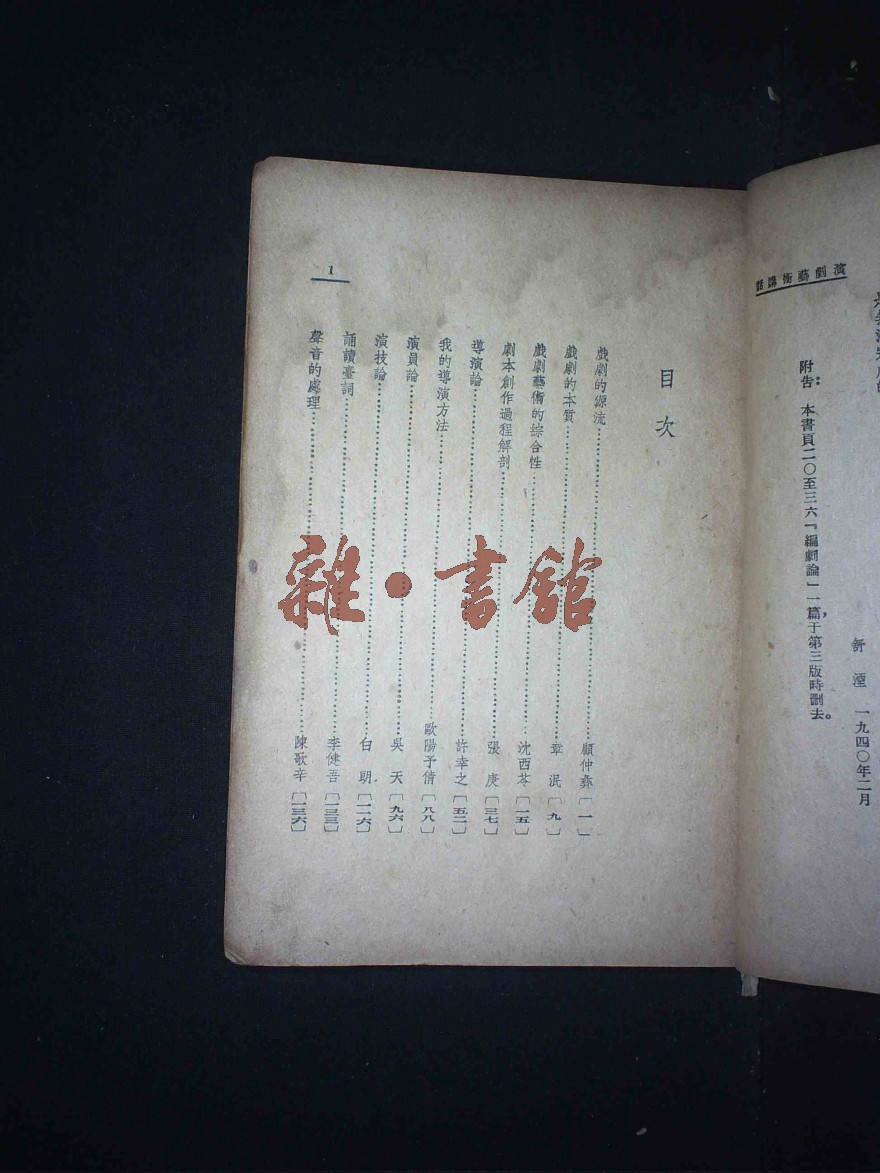 演劇藝術講話
舒湮 一九四〇年二月
附告：本書頁二〇至三六「編劇論」一篇，于第三版時刪去。
1
目次
戲劇的源流……顧仲彝〔一〕
戲劇的本質……章泯〔九〕
戲劇藝術的综合性……沈西苓〔一五〕
劇本創作過程解剖……張庚〔三七〕
導演論……許幸之〔五二〕
我的導演方法……歐陽予倩〔八八〕
演員論……吳天〔九六〕
演技論……白〔一二六〕
誦讀臺詞……李健吾〔一三三〕
聲音的處理……陳歌辛〔一三六〕
雜·書館